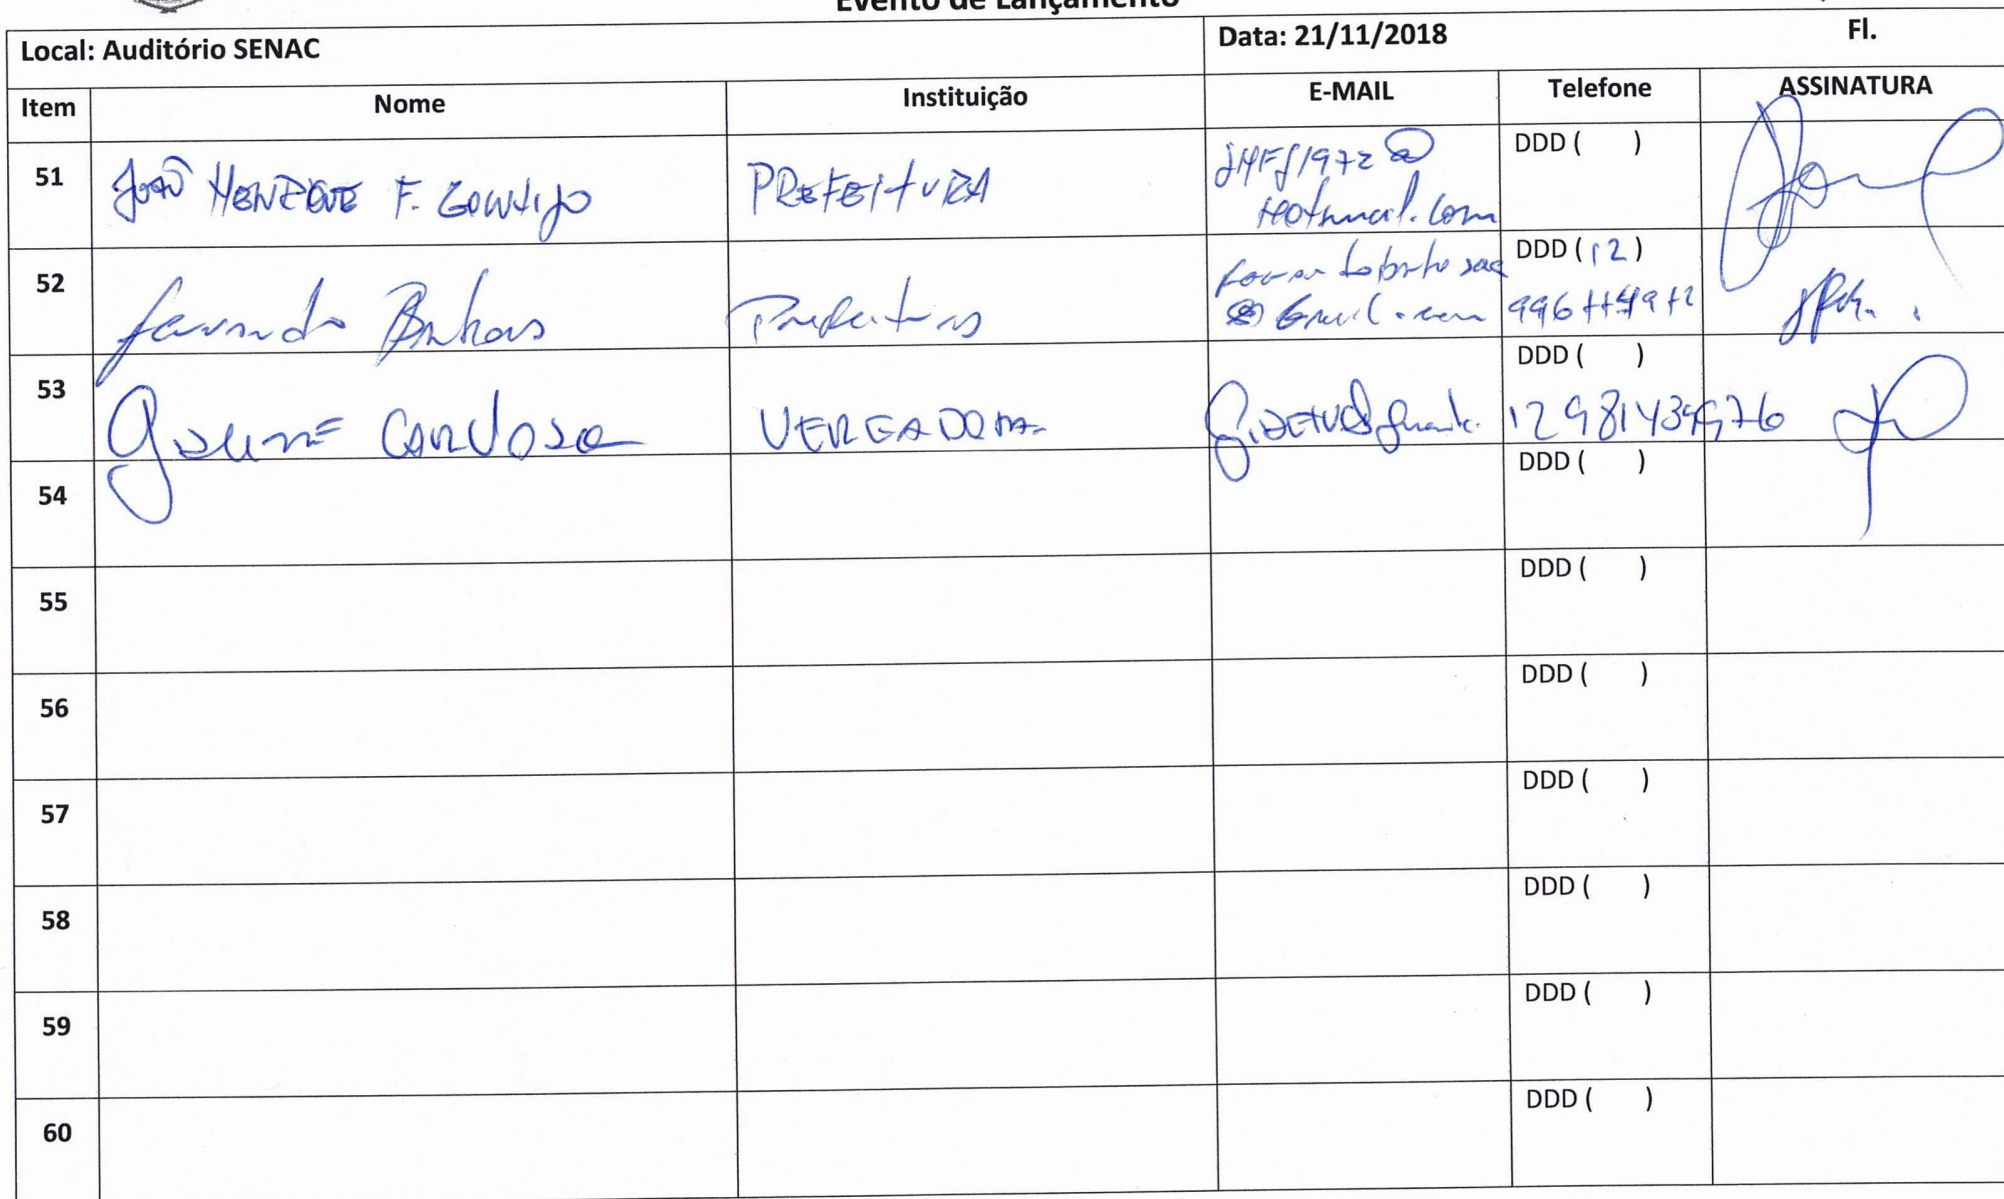 Evento de Lançamento
Local: Auditório SENAC
Data: 21/11/2018
Fl.
Item
Nome
Instituição
E-MAIL
Telefone
ASSINATURA
51
João HENRIQUE F. GONTIJO
PREFEITURA
@
hotmail.com
DDD ( )
52
Prefeitura
@Gmail.com
DDD (12)
53
CARDOSO
VEREADORA
DDD ( )
54
DDD ( )
55
DDD ( )
56
DDD ( )
57
DDD ( )
58
DDD ( )
59
DDD ( )
60
DDD ( )